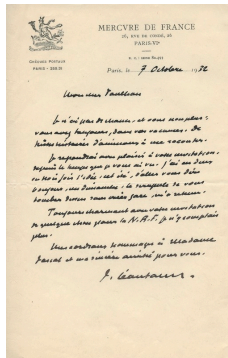 MERCVRE DE FRANCE
26, RUE DE CONDÉ, 26
PARIS-VIᵉ
CHÈQUES POSTAUX
PARIS - 259.31
R. C. SEINE 80.493
Paris, le 7 Octobre 1932
Monsieur Paulhan
Je n'ai pas de chance, et vous non plus:
vous avez toujours, dans vos vacances, de
tristes histoires d'animaux à me raconter.
Je répondrai avec plaisir à votre invitation,
depuis le temps que je vous ai vu. J'ai eu deux
ou trois fois l'idée, cet été, d'aller vous dire
bonjour, un dimanche: le scrupule de vous
tomber dessus sans crier gare, m'a retenu.
Toujours charmant avec votre invitation
de quelque chose pour la N.R.F. Je n'y comptais
plus.
Mes cordiaux hommages à Madame
Pascal et ma sincère amitié pour vous.
P. Léautaud